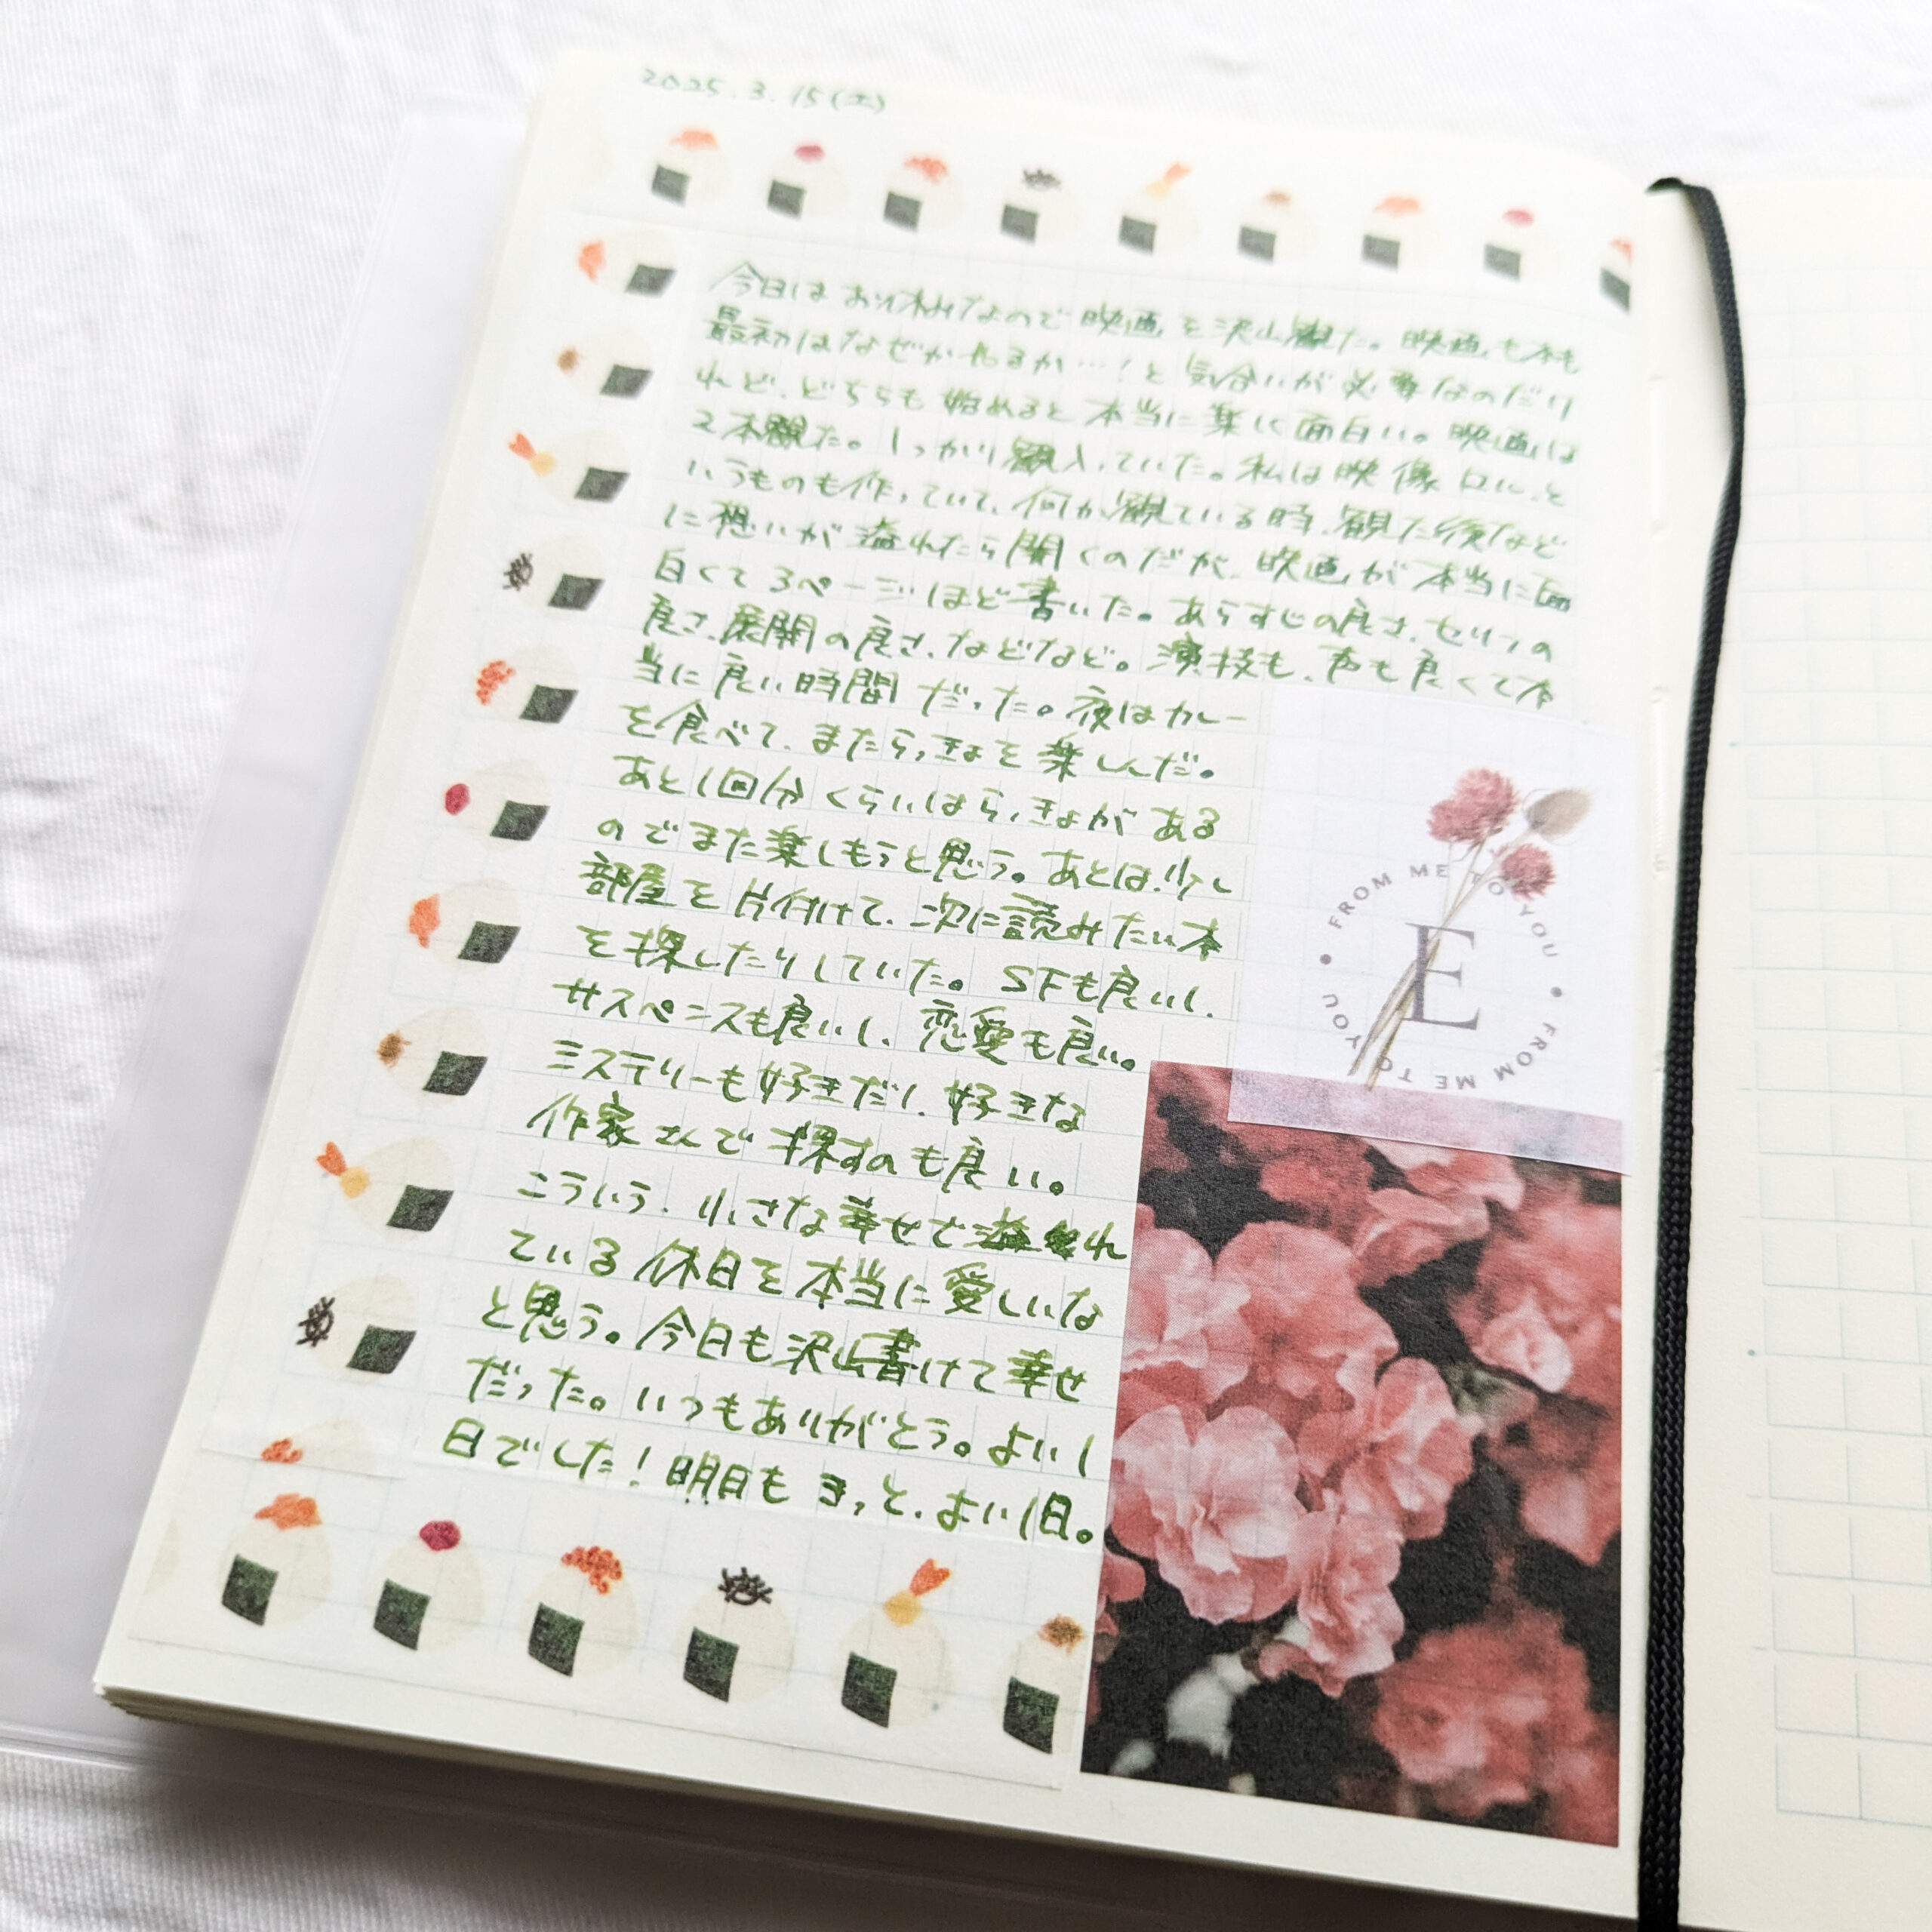 2025.3.15(土)
今日はお休みなので映画を沢山観た。映画も本も
最初はなぜかやるか…!と気合いが必要なのだけ
れど、どちらも始めると本当に楽しく面白い。映画は
2本観た。しっかり観入っていた。私は映像ログと
いうものも作っていて、何か観ている時、観た後など
に想いが溢れたら開くのだが、映画が本当に面
白くて3ページほど書いた。あらすじの良さ、セリフの
良さ、展開の良さ、などなど。演技も、声も良くて本
当に良い時間だった。夜はカレー
を食べて、またらっきょを楽しんだ。
あと1回分くらいはらっきょがある
のでまた楽しもうと思う。あとは、少し
部屋を片付けて、次に読みたい本
を探したりしていた。SFも良いし、
サスペンスも良いし、恋愛も良い。
ミステリーも好きだし、好きな
作家さんで探すのも良い。
こういう、小さな幸せで溢れ
ている休日を本当に愛しいな
と思う。今日も沢山書けて幸せ
だった。いつもありがとう。よい1
日でした!明日もきっと、よい1日。
FROM ME TO YOU • FROM ME TO YOU •
E